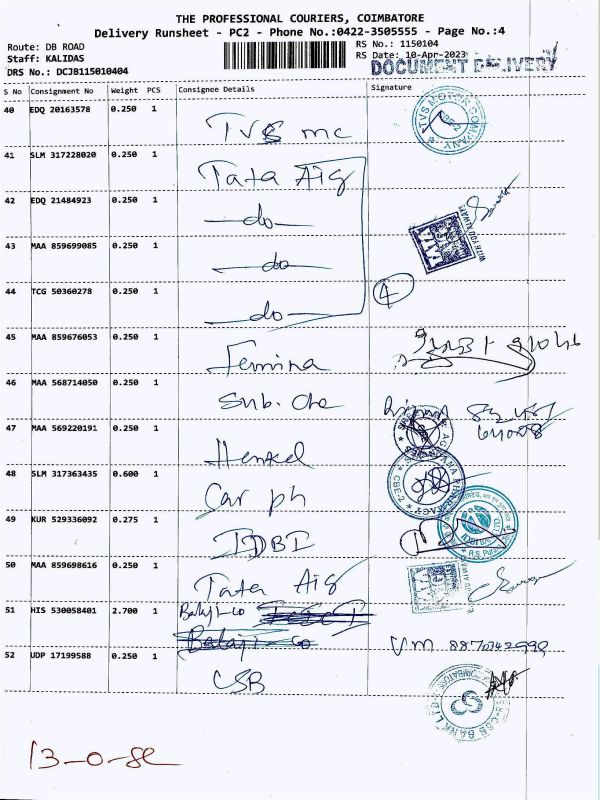 THE PROFESSIONAL COURIERS, COIMBATORE
Delivery Runsheet - PC2 - Phone No.:0422-3505555 - Page No.:4
Route: DB ROAD
Staff: KALIDAS
DRS No.: DCJB115010404
RS No.: 1150104
RS Date: 10-Apr-2023
DOCUMENT DELIVERY
S No Consignment No Weight PCS Consignee Details Signature
40 EDQ 20163578 0.250 1 TVS mc
TVS MOTOR COMPANY
41 SLM 317228020 0.250 1 Tata Aig
42 EDQ 21484923 0.250 1 -do-
WITH YOU ALWAYS
43 MAA 859699085 0.250 1 -do-
44 TCG 50360278 0.250 1 -do- 4
45 MAA 859676053 0.250 1 Femina
46 MAA 568714050 0.250 1 Sub. Che
47 MAA 569220191 0.250 1 Henkel
48 SLM 317363435 0.600 1 Car ph
PHARMACY CBE-2
49 KUR 529336092 0.275 1 IDBI
IDBI R.S. Puram
50 MAA 859698616 0.250 1 Tata Aig
51 HIS 530058401 2.700 1 Balaji-co
Balaji-co
52 UDP 17199588 0.250 1 CSB
CSB BANK
13-0-8c